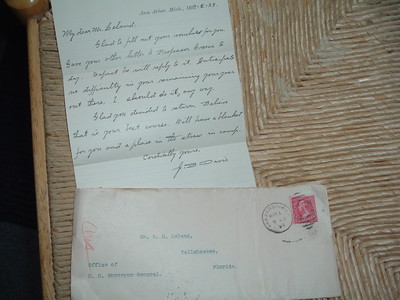 Ann Arbor, Mich,
My dear Mr. Leland:
Glad to fill out your vouchers for you.
Gave your other letter to Professor to-
day. Expect he will reply to it. Anticipate
no difficulty in your remaining
out there. I should do it, any way.
Glad you decided to return. Believe
that is your best course. Will have a blanket
for you and a place in the in camp.
Cordially yours,
Davis
Mr. Leland,
Tallahassee,
Florida.
Office of
U. S. Surveyor General.